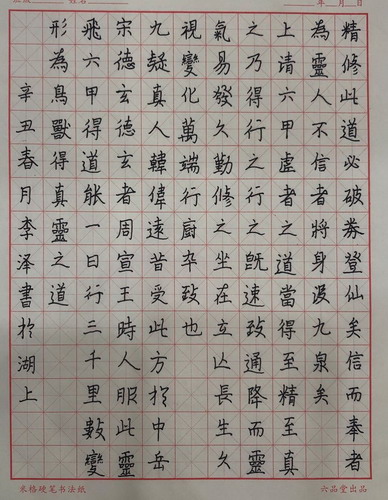 姓名 年 月 日
精修此道必破券登仙矣信而奉者
為靈人不信者將身没九泉矣
上请六甲虛者之道當得至精至真
之乃得行之行之既速致通降而靈
氣易發久勤修之坐在立亡長生久
視變化萬端行廚卒致也
九疑真人韓偉遠昔受此方於中岳
宋德玄德玄者周宣王時人服此靈
飛六甲得道能一日行三千里數變
形為鳥獸得真靈之道
辛丑春月李泽書於湖上
米格硬笔书法纸 六品堂出品